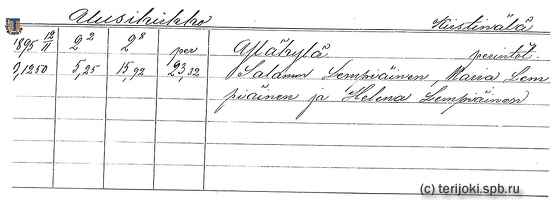 Uusikirkko Kristinälä
1895 12/11 2² 2⁸ per Afläkylä perintöt.
0,1250 5,25 15,92 23,32 Salamon Lempiäinen, Maria Lem
piäinen ja Helena Lempiäinen
(c) terijoki.spb.ru